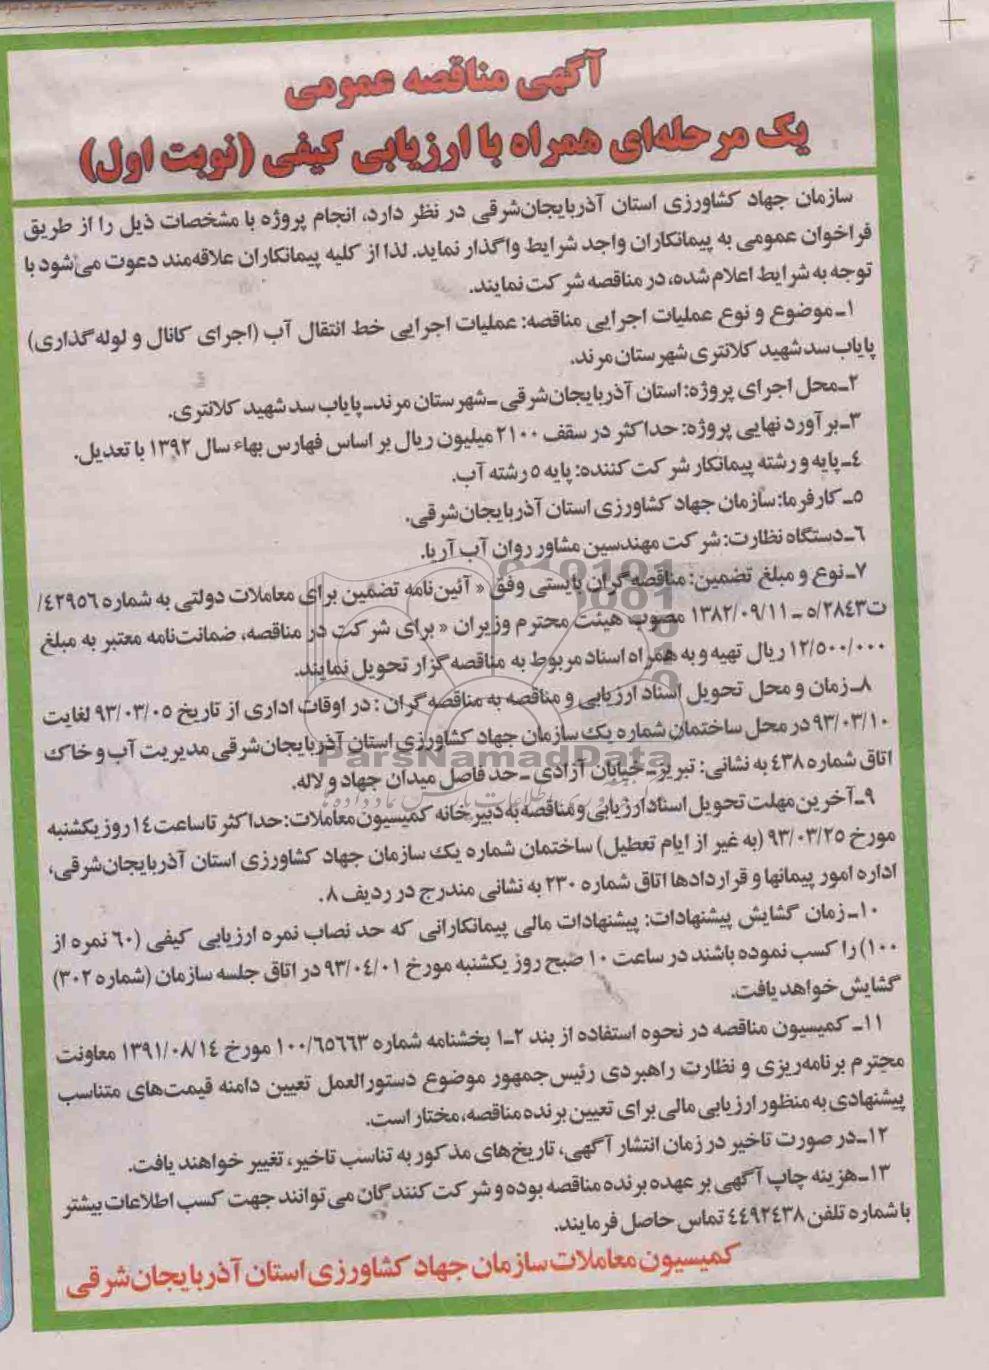 آگهی مناقصه عمومی
یک مرحله‌ای همراه با ارزیابی کیفی (نوبت اول)
سازمان جهاد کشاورزی استان آذربایجان‌شرقی در نظر دارد، انجام پروژه با مشخصات ذیل را از طریق
فراخوان عمومی به پیمانکاران واجد شرایط واگذار نماید. لذا از کلیه پیمانکاران علاقه‌مند دعوت می‌شود با
توجه به شرایط اعلام شده، در مناقصه شرکت نمایند.
۱ـ موضوع و نوع عملیات اجرایی مناقصه: عملیات اجرایی خط انتقال آب (اجرای کانال و لوله‌گذاری)
پایاب سد شهید کلانتری شهرستان مرند.
۲ـ محل اجرای پروژه: استان آذربایجان‌شرقی ـ شهرستان مرند ـ پایاب سد شهید کلانتری.
۳ـ برآورد نهایی پروژه: حداکثر در سقف ۲۱۰۰ میلیون ریال بر اساس فهارس بهاء سال ۱۳۹۲ با تعدیل.
۴ـ پایه و رشته پیمانکار شرکت کننده: پایه ۵ رشته آب.
۵ـ کارفرما: سازمان جهاد کشاورزی استان آذربایجان‌شرقی.
۶ـ دستگاه نظارت: شرکت مهندسین مشاور روان آب آریا.
۷ـ نوع و مبلغ تضمین: مناقصه‌گران بایستی وفق « آئین‌نامه تضمین برای معاملات دولتی به شماره ۴۲۹۵۶/
ت۵/۲۸۴۳ ـ ۱۳۸۲/۰۹/۱۱ مصوب هیئت محترم وزیران « برای شرکت در مناقصه، ضمانت‌نامه معتبر به مبلغ
۱۲/۵۰۰/۰۰۰ ریال تهیه و به همراه اسناد مربوط به مناقصه‌گزار تحویل نمایند.
۸ـ زمان و محل تحویل اسناد ارزیابی و مناقصه به مناقصه‌گران : در اوقات اداری از تاریخ ۹۳/۰۳/۰۵ لغایت
۹۳/۰۳/۱۰ در محل ساختمان شماره یک سازمان جهاد کشاورزی استان آذربایجان‌شرقی مدیریت آب و خاک
اتاق شماره ۴۳۸ به نشانی: تبریز ـ خیابان آزادی ـ حد فاصل میدان جهاد و لاله.
۹ـ آخرین مهلت تحویل اسناد ارزیابی و مناقصه به دبیرخانه کمیسیون معاملات: حداکثر تا ساعت ۱۴ روز یکشنبه
مورخ ۹۳/۰۳/۲۵ (به غیر از ایام تعطیل) ساختمان شماره یک سازمان جهاد کشاورزی استان آذربایجان‌شرقی،
اداره امور پیمانها و قراردادها اتاق شماره ۲۳۰ به نشانی مندرج در ردیف ۸.
۱۰ـ زمان گشایش پیشنهادات: پیشنهادات مالی پیمانکارانی که حد نصاب نمره ارزیابی کیفی (۶۰ نمره از
۱۰۰) را کسب نموده باشند در ساعت ۱۰ صبح روز یکشنبه مورخ ۹۳/۰۴/۰۱ در اتاق جلسه سازمان (شماره ۳۰۲)
گشایش خواهد یافت.
۱۱ـ کمیسیون مناقصه در نحوه استفاده از بند ۲ـ۱ بخشنامه شماره ۱۰۰/۶۵۶۶۳ مورخ ۱۳۹۱/۰۸/۱۴ معاونت
محترم برنامه‌ریزی و نظارت راهبردی رئیس‌جمهور موضوع دستورالعمل تعیین دامنه قیمت‌های متناسب
پیشنهادی به منظور ارزیابی مالی برای تعیین برنده مناقصه، مختار است.
۱۲ـ در صورت تاخیر در زمان انتشار آگهی، تاریخ‌های مذکور به تناسب تاخیر، تغییر خواهند یافت.
۱۳ـ هزینه چاپ آگهی بر عهده برنده مناقصه بوده و شرکت کنندگان می‌توانند جهت کسب اطلاعات بیشتر
با شماره تلفن ۴۴۹۲۴۳۸ تماس حاصل فرمایند.
کمیسیون معاملات سازمان جهاد کشاورزی استان آذربایجان شرقی
ParsNamadData